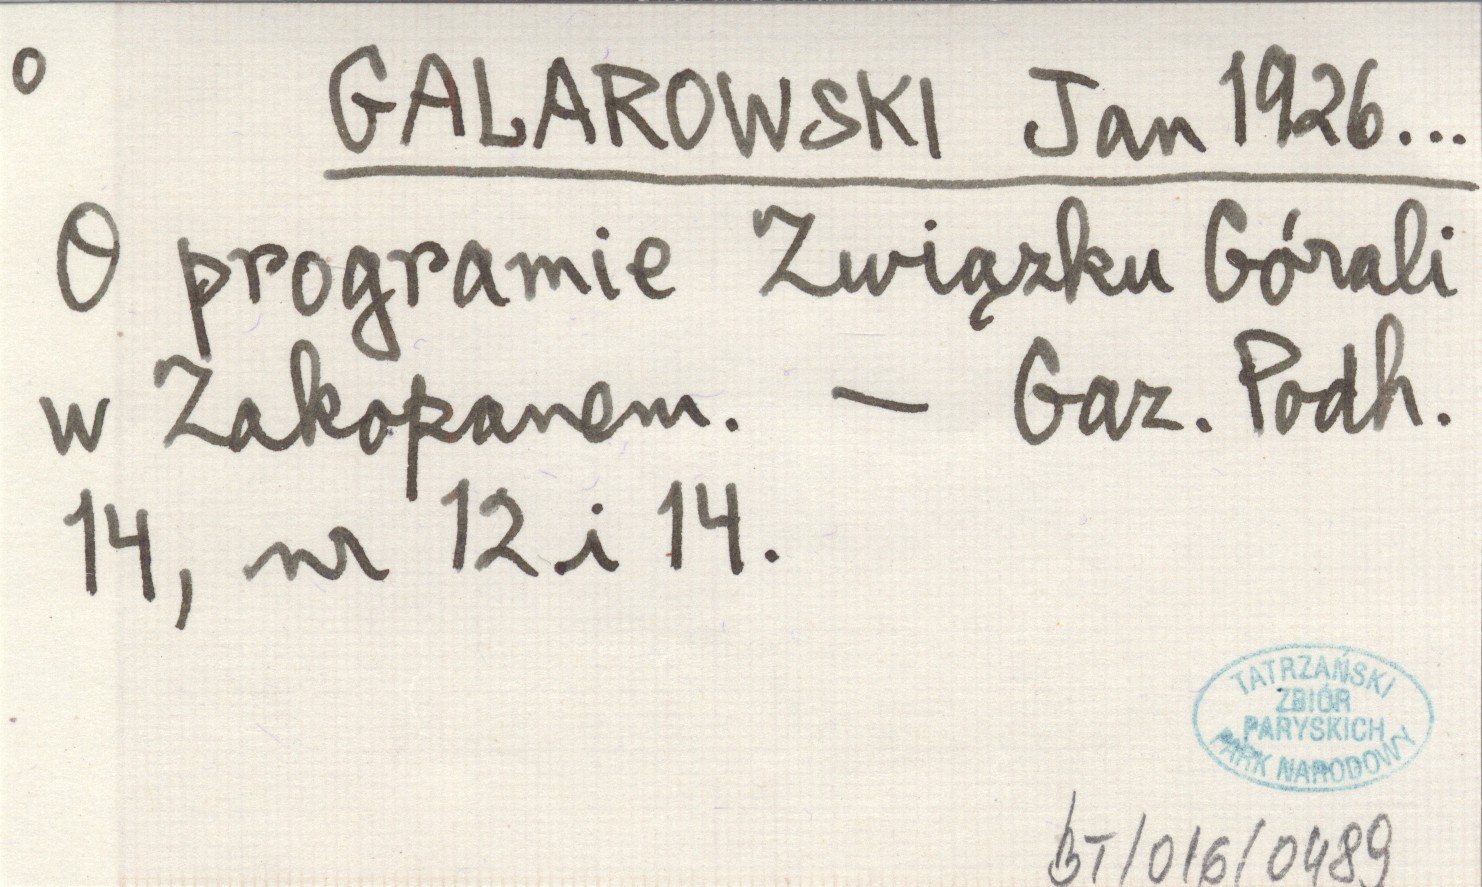 o
GALAROWSKI Jan 1926...
O programie Związku Górali
w Zakopanem. — Gaz. Podh.
14, nr 12 i 14.
TATRZAŃSKI
ZBIÓR
PARYSKICH
PARK NARODOWY
BT/016/0489